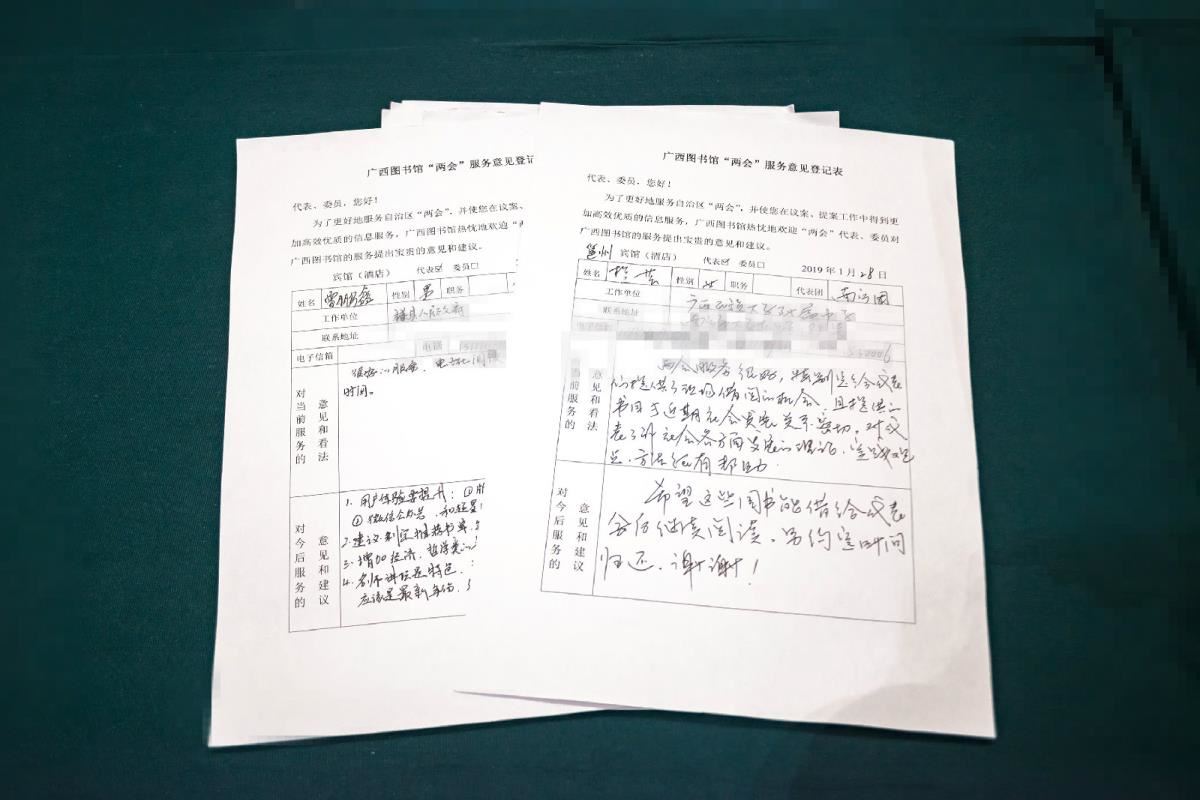 广西图书馆“两会”服务意见登记
代表、委员，您好！
为了更好地服务自治区“两会”，并使您在议案、
加高效优质的信息服务，广西图书馆热忱地欢迎“
广西图书馆的服务提出宝贵的意见和建议。
宾馆（酒店） 代表☑ 委员☐
姓名 曾 鑫 性别 男 职务
工作单位 县人民政府
联系地址
电子信箱 电话
对当前服务的意见和看法
服务，电子
时间。
对今后服务的意见和建议
1. 用户体验要提升：①
②微信公众号
2. 建议制定推荐书单
3. 增加经济、哲学类
4. 名师讲坛是特色，
应该是最新年份，
广西图书馆“两会”服务意见登记表
代表、委员，您好！
为了更好地服务自治区“两会”，并使您在议案、提案工作中得到更
加高效优质的信息服务，广西图书馆热忱地欢迎“两会”代表、委员对
广西图书馆的服务提出宝贵的意见和建议。
邕州 宾馆（酒店） 代表☑ 委员☐ 2019 年 1 月 28 日
姓名 性别 女 职务 代表团 南宁团
工作单位 广西民族大学附属中学
联系地址
电子
当前服务的意见和看法
两会服务很好，特别是给代表
们提供了现场借阅的机会，且提供的
书目与近期社会发展关系密切，对代
表了解社会各方面发展的理论、实践观
点、方法很有帮助。
对今后服务的意见和建议
希望这些图书能借给代表
会后继续阅读，另约定时间
归还，谢谢！